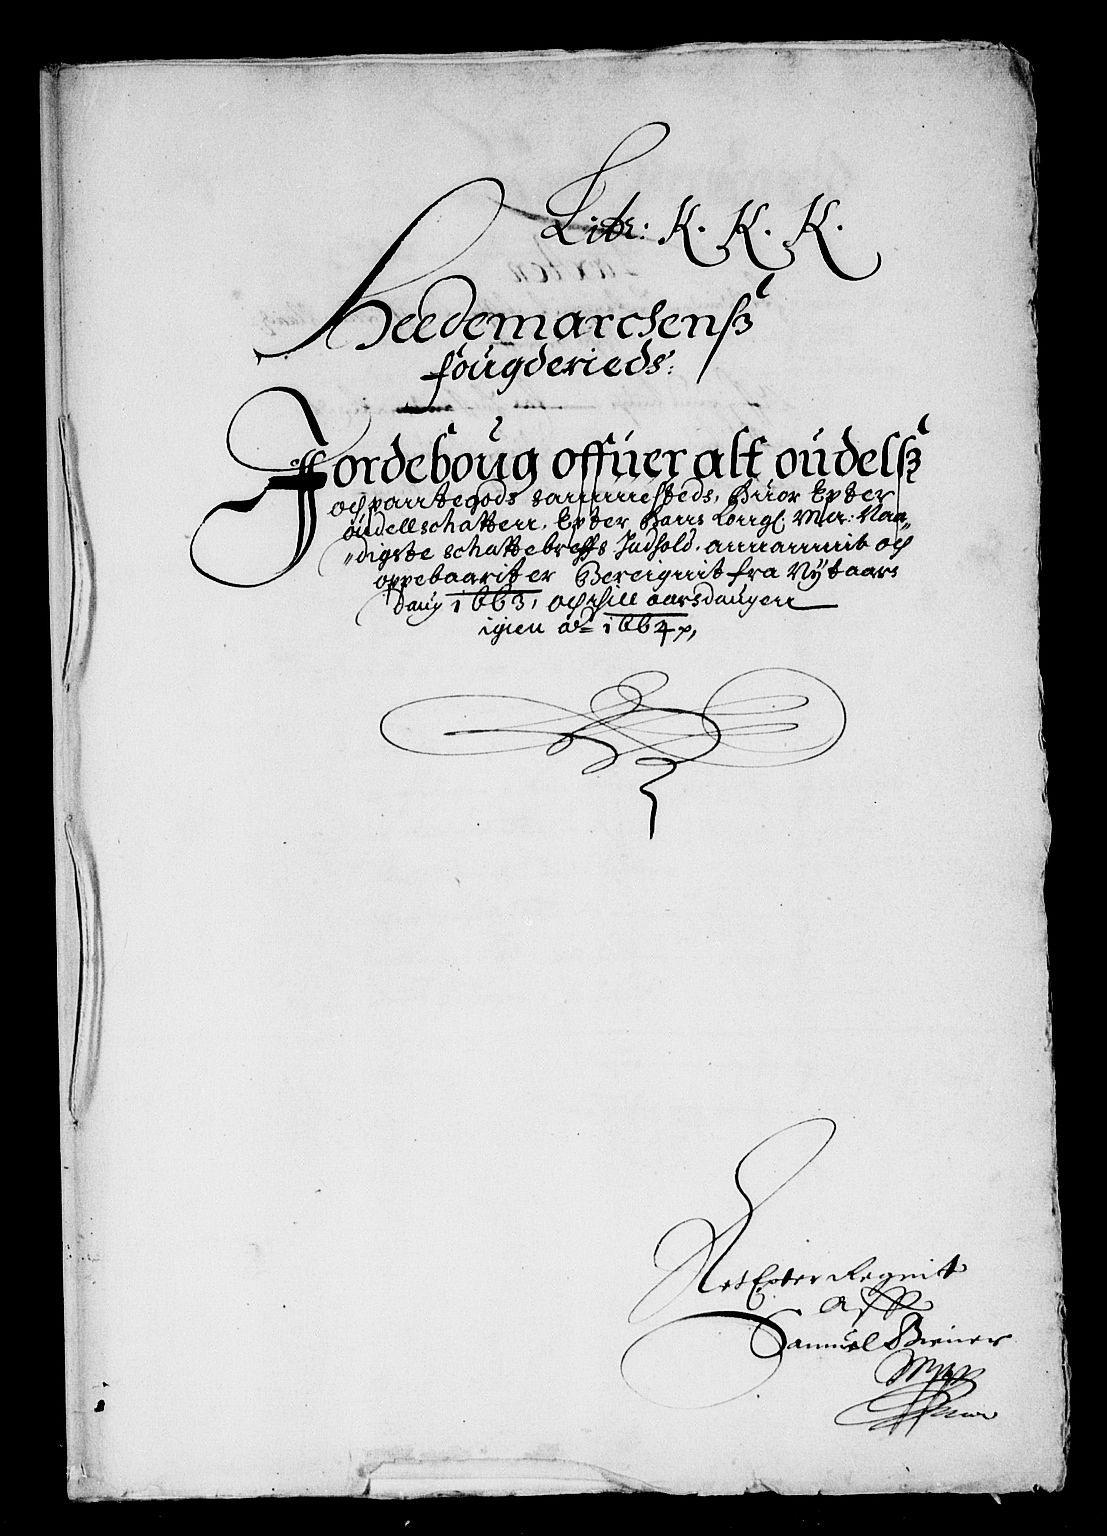 Litr: K. K. K.
Heedemarchenß
fougderieds:
Jordeboug offuer alt oudelß
och pantegods sammesteds, Huor Epter
oudellschatten, Epter Hans Kongl: May: Naa„
„digste schattebreffs Indhold, annammit och
oppebaarit er Bereignit fra Nytaars
daug 1663, och till aarsdaugen
igien Ao 1664
Ret Epter Regnit
aff
Samuel